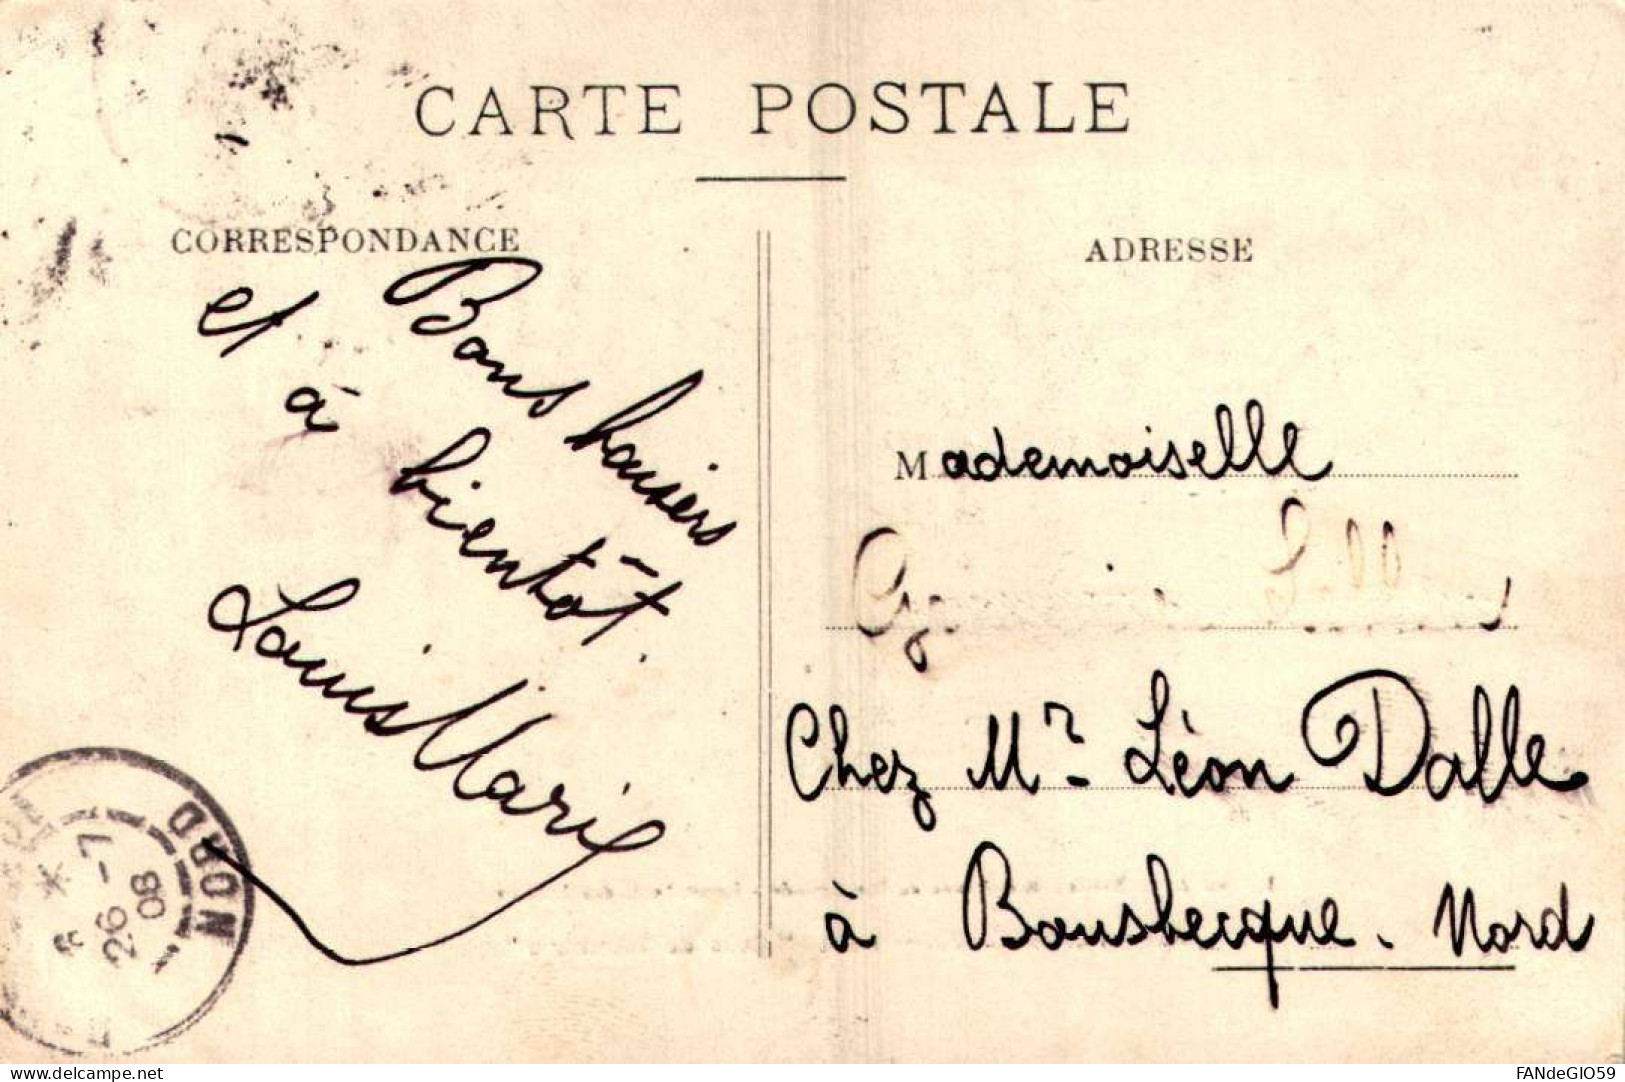 CARTE POSTALE
CORRESPONDANCE
Bons baisers
et à bientôt.
Louis Marie
ADRESSE
Mademoiselle
Chez Mr Léon Dalle
à Bousbecque. Nord
NORD
26 -7
08
delcampe.net
FANdeGIO59